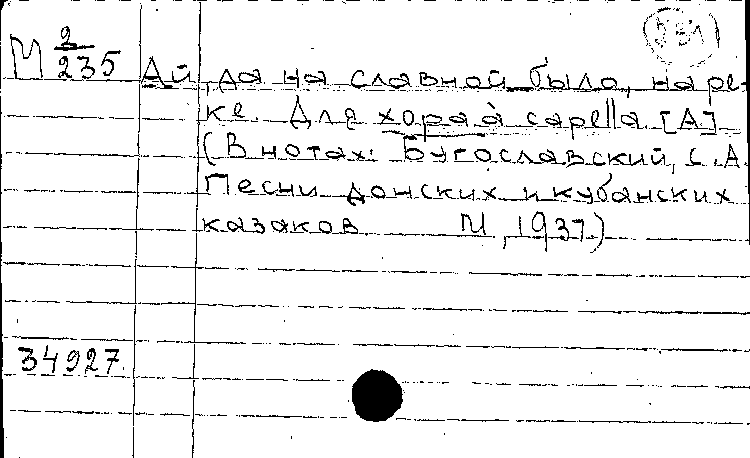 М 2/235
Ай, да на славной было, на ре-
ке. Для хора à capella [А]
(В нотах: Бугославский, С.А.
Песни донских и кубанских
казаков М, 1937.)
34927.